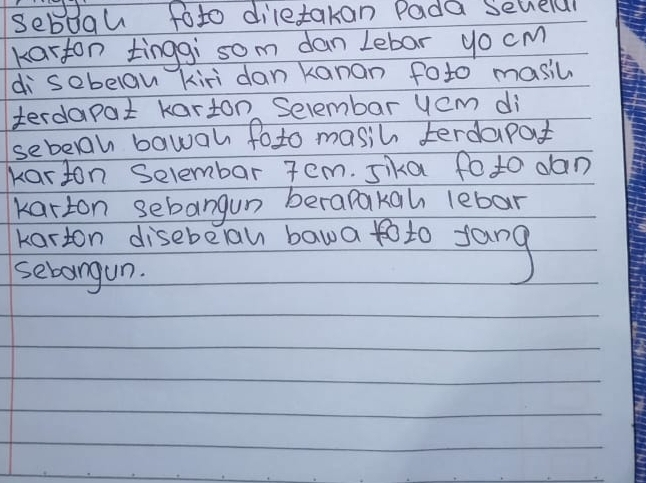 sebuah foto diletakan pada sehelai
karton tinggi 50m dan Lebar 40 cm
di sebelah kiri dan kanan foto masih
terdapat karton Selembar 4cm di
sebelah bawah foto masih terdapat
karton Selembar 7cm. Jika foto dan
karton sebangun berapakah lebar
karton disebelah bawa foto yang
sebangun.